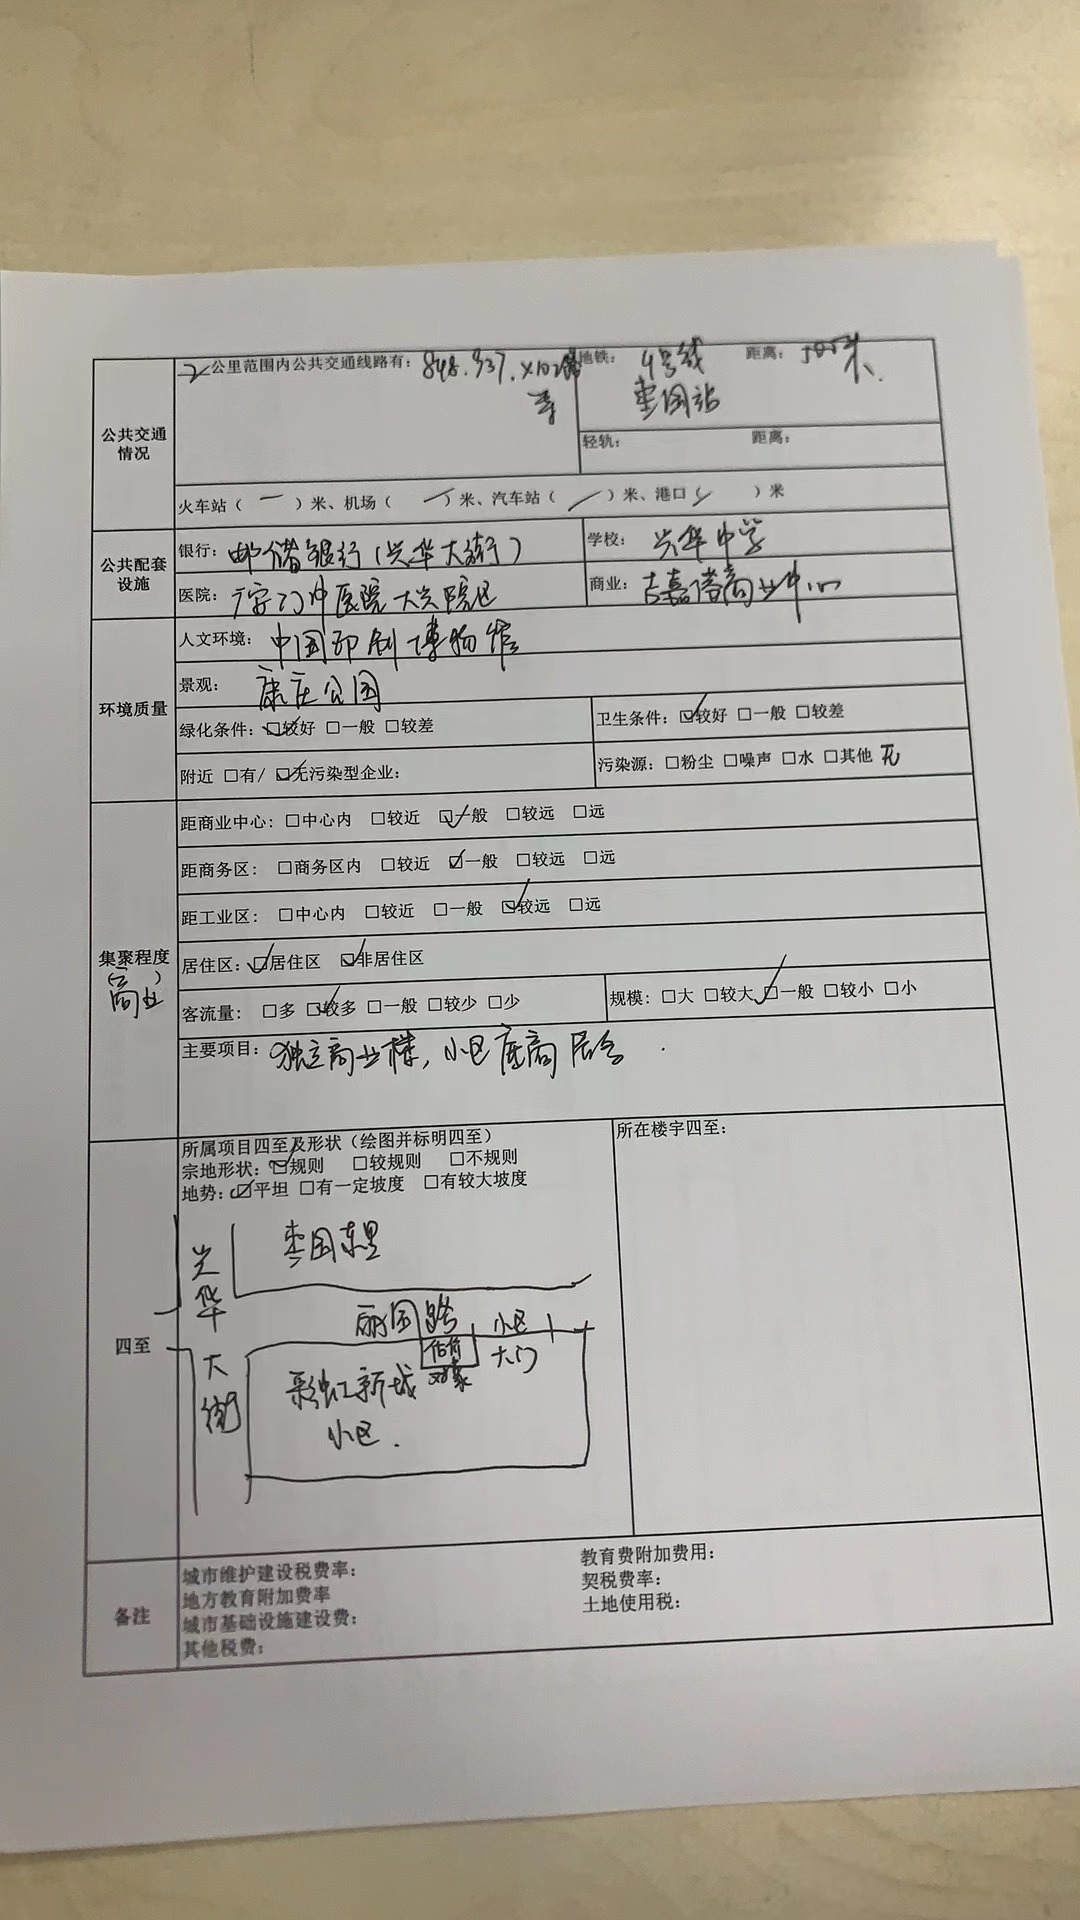 2公里范围内公共交通线路有：848.937.X102路
等
地铁：4号线 距离：米、
枣园站
公共交通
情况
轻轨： 距离：
火车站（ — ）米、机场（ — ）米、汽车站（ — ）米、港口（ ）米
公共配套
设施
银行：邮储银行（兴华大街行）
学校：兴华中学
医院：广安门中医院大兴院区
商业：吉嘉偌商业中心
环境质量
人文环境：中国印刷博物馆
景观：康庄公园
绿化条件：☑较好 □一般 □较差
卫生条件：☑较好 □一般 □较差
附近 □有/ ☑无污染型企业：
污染源：□粉尘 □噪声 □水 □其他 无
集聚程度
（商业）
距商业中心：□中心内 □较近 ☑一般 □较远 □远
距商务区： □商务区内 □较近 ☑一般 □较远 □远
距工业区： □中心内 □较近 □一般 ☑较远 □远
居住区：☑居住区 ☑非居住区
客流量： □多 ☑较多 □一般 □较少 □少
规模：□大 □较大 ☑一般 □较小 □小
主要项目：独立商业楼，小区底商
四至
所属项目四至及形状（绘图并标明四至）
宗地形状：☑规则 □较规则 □不规则
地势：☑平坦 □有一定坡度 □有较大坡度
所在楼宇四至：
兴华大街
枣园东里
丽园路
小区
大门
估价
对象
彩虹新城
小区．
备注
城市维护建设税费率：
地方教育附加费率
城市基础设施建设费：
其他税费：
教育费附加费用：
契税费率：
土地使用税：